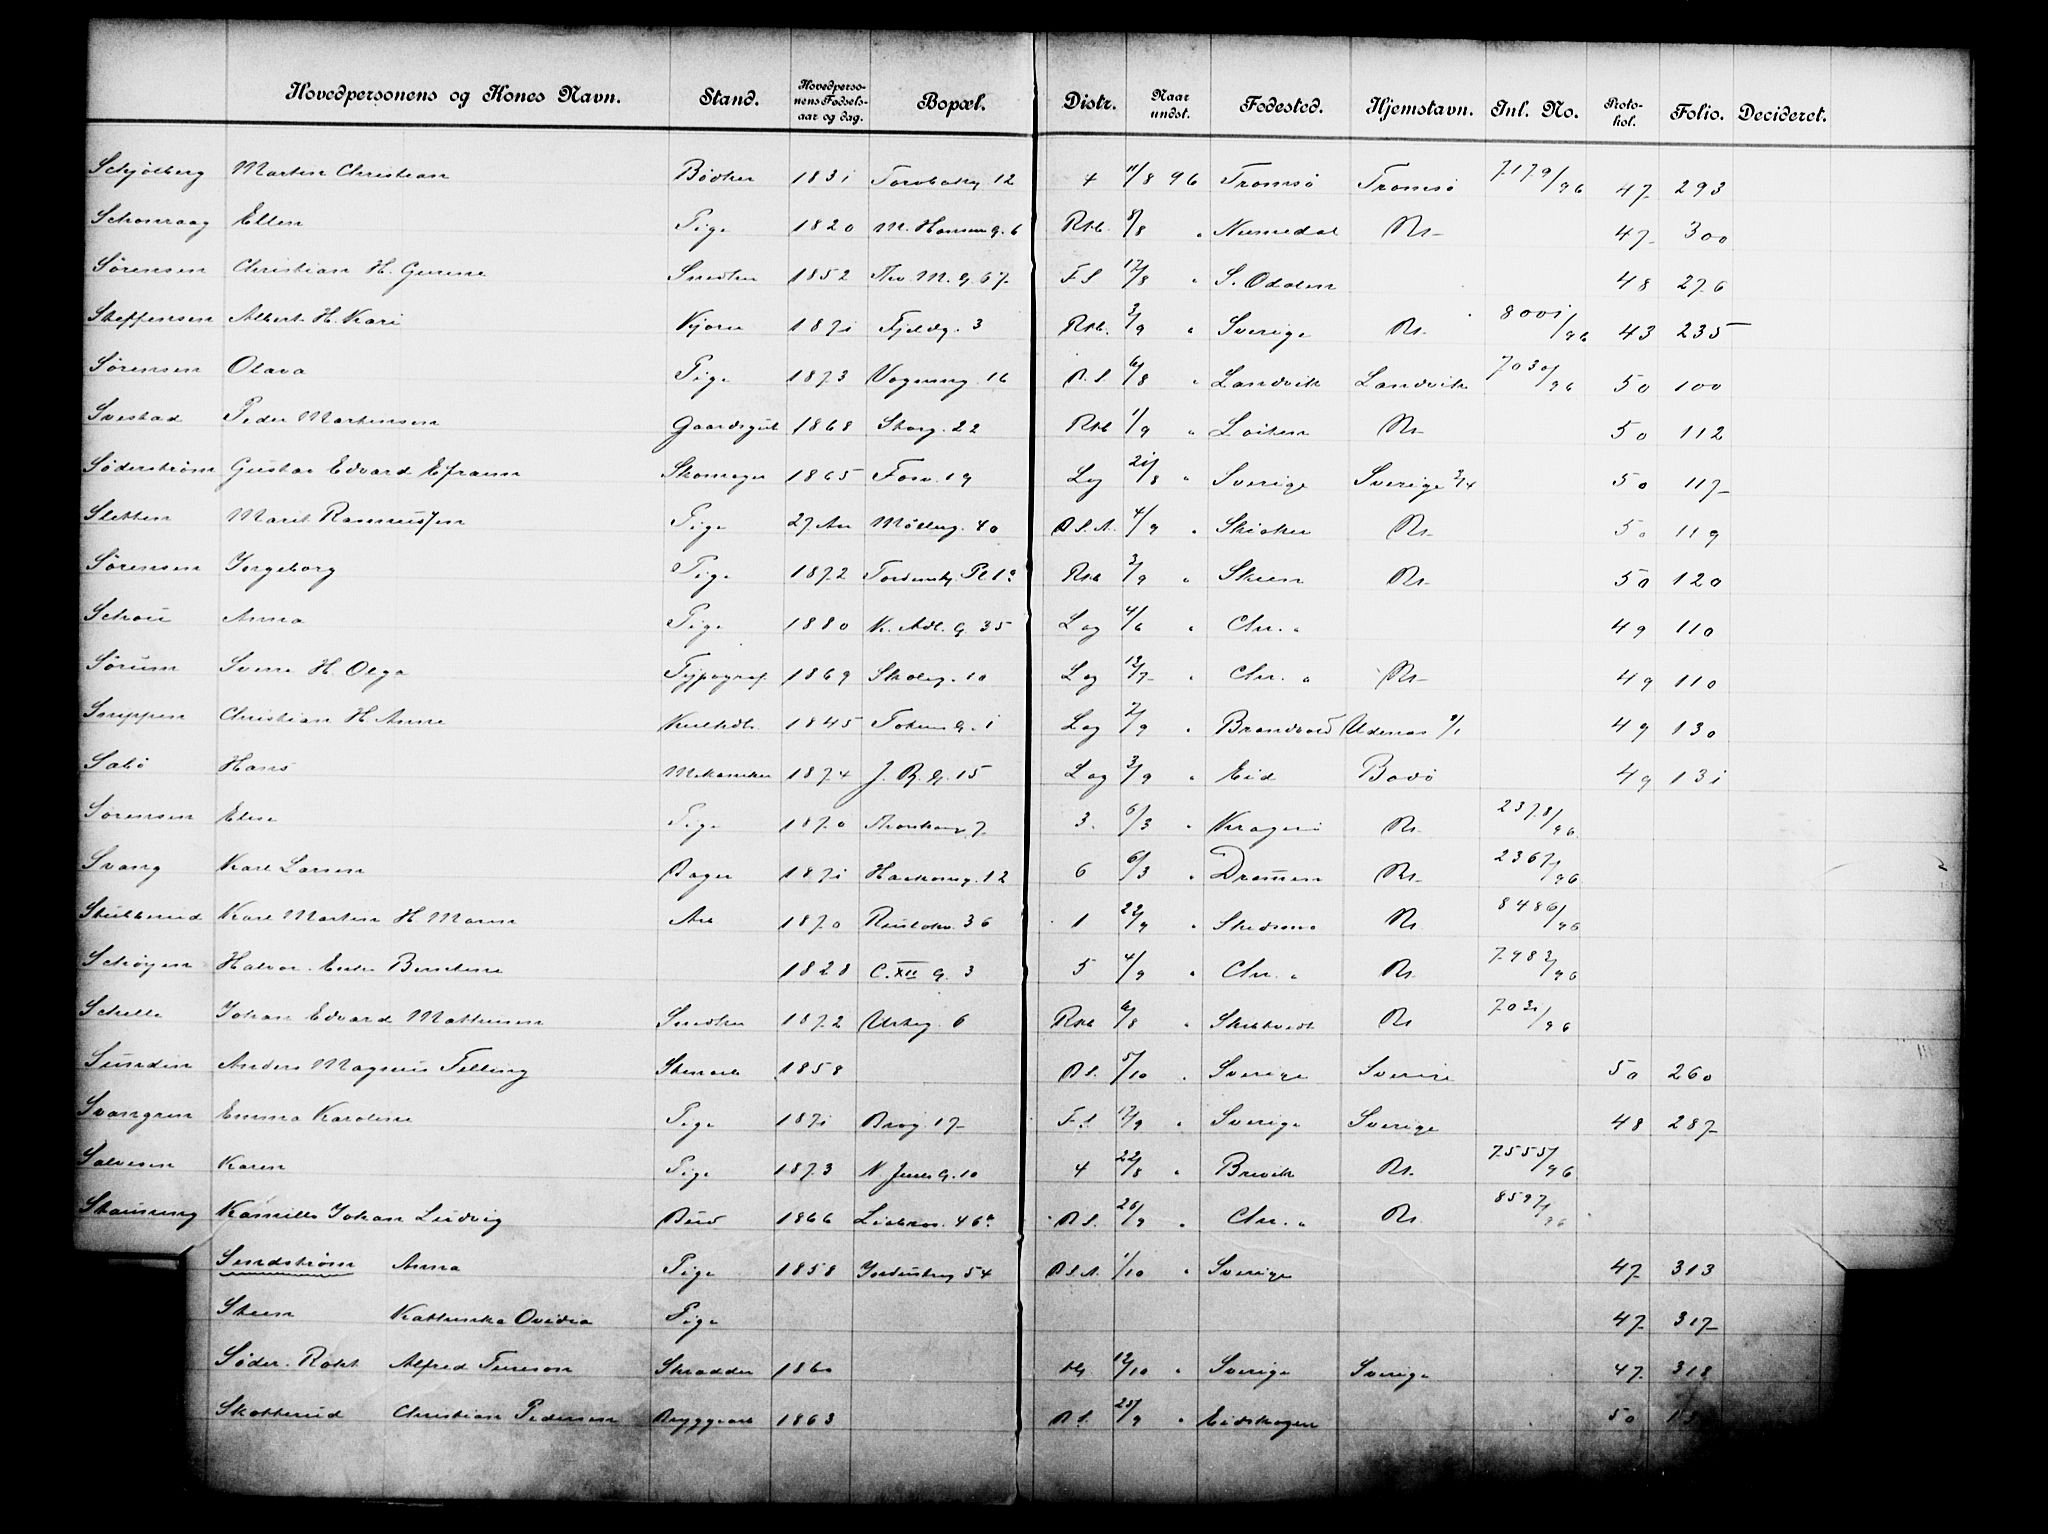 Hovedpersonens og Kones Navn. Stand. Hovedpersonens Fødselsaar og dag. Bopæl. Distr. Naar undst. Fødested. Hjemstavn. Inl. No. Protokol. Folio. Decideret.
Schjølberg Martin Christian Bødker 1831 12 4 11/8 96 Tromsø Tromsø 7179/96 47 293
Schonraag Ellen Pige 1820 M. Hansens g. 6 Rkb. 8/8 " Numedal Ns 47 300
Sørensen Christian H. Gurine Snedker 1852 Thv. M. g. 67 F.S 12/8 " S. Odalen 48 276
Steffensen Albert H. Kari Kjører 1871 Fjeldg. 3 Rkb. 3/9 " Sverige Ns 8001/96 43 235
Sørensen Olava Pige 1873 Vognmg. 16 B.S. 6/8 " Landvik Landvik 7030/96 50 100
Svestad Peder Martinsen Gaardsgut 1868 Storg. 22 Rkb 1/9 " Løiten Ns 50 112
Søderstrøm Gustav Edvard Efraim Skomager 1865 Fosv. 19 Lg 21/8 " Sverige Sverige 3/4 50 117
Sletten Marit Rasmusen Pige 27 Aar Møllerg. 40 B.S.A. 4/9 " Skiaker Ns 50 119
Sørensen Ingeborg Pige 1872 Tordensk. Pl 1a Rkb 3/9 " Skien Ns 50 120
Schou Anna Pige 1880 K. Adl. G. 35 Lag 4/6 " Chr. " 49 110
Sørum Sverre H. Olga Typograf 1869 Skoleg. 10 Lag 13/7 " Chr. " Ns 49 110
Christian H Anne 1845 Tokus G. 1 Lag 2/9 " Brandvold Udenæs 9/1 49 130
Sabø Hans Mekaniker 1874 J. B. G. 15 Lag 3/9 " Eid Bodø 49 131
Sørensen Elise Pige 1870 7 3. 6/3 " Kragerø Ns 2378/96
Svang Karl Larsen Bager 1871 Haakonsg. 12 6 6/3 " Dramen Ns 2367/96
Stubberud Karl Martin H Marie Arb 1870 36 1 22/9 " Skedsmo Ns 8486/96
Schøyen Halvor. Enke Berntine 1828 C. XII G. 3 5 4/9 " Chr. " Ns 7983/96
Schelle Johan Edvard Mathisen Snedker 1872 Urteg. 6 Rkb 6/8 " Skibtvedt Ns 7031/96
Sundin Anders Magnus Felling Stenarb 1858 B.S. 5/10 " Sverige Sverige 50 260
Svangren Emma Karoline Pige 1871 Brog. 17 F.S 12/9 " Sverige Sverige 48 287
Salvesen Karen Pige 1873 N. Juels G. 10 4 22/8 " Brevik Ns 7555/96
Stausning Kamillo Johan Ludvig Bud 1866 46a B.S. 26/9 " Chr. " Ns 8597/96
Sundstrøm Anna Pige 1858 54 B.S.A. 1/10 " Sverige 47 313
Steen Kathinka Ovidia Pige 47 317
Søder. Rokt Alfred Tureson Skrædder 1860 Hg 12/10 " Sverige Sverige 47 318
Skotterud Christian Pedersen Bryggearb 1863 B.S. 25/9 " Eidskogen 50